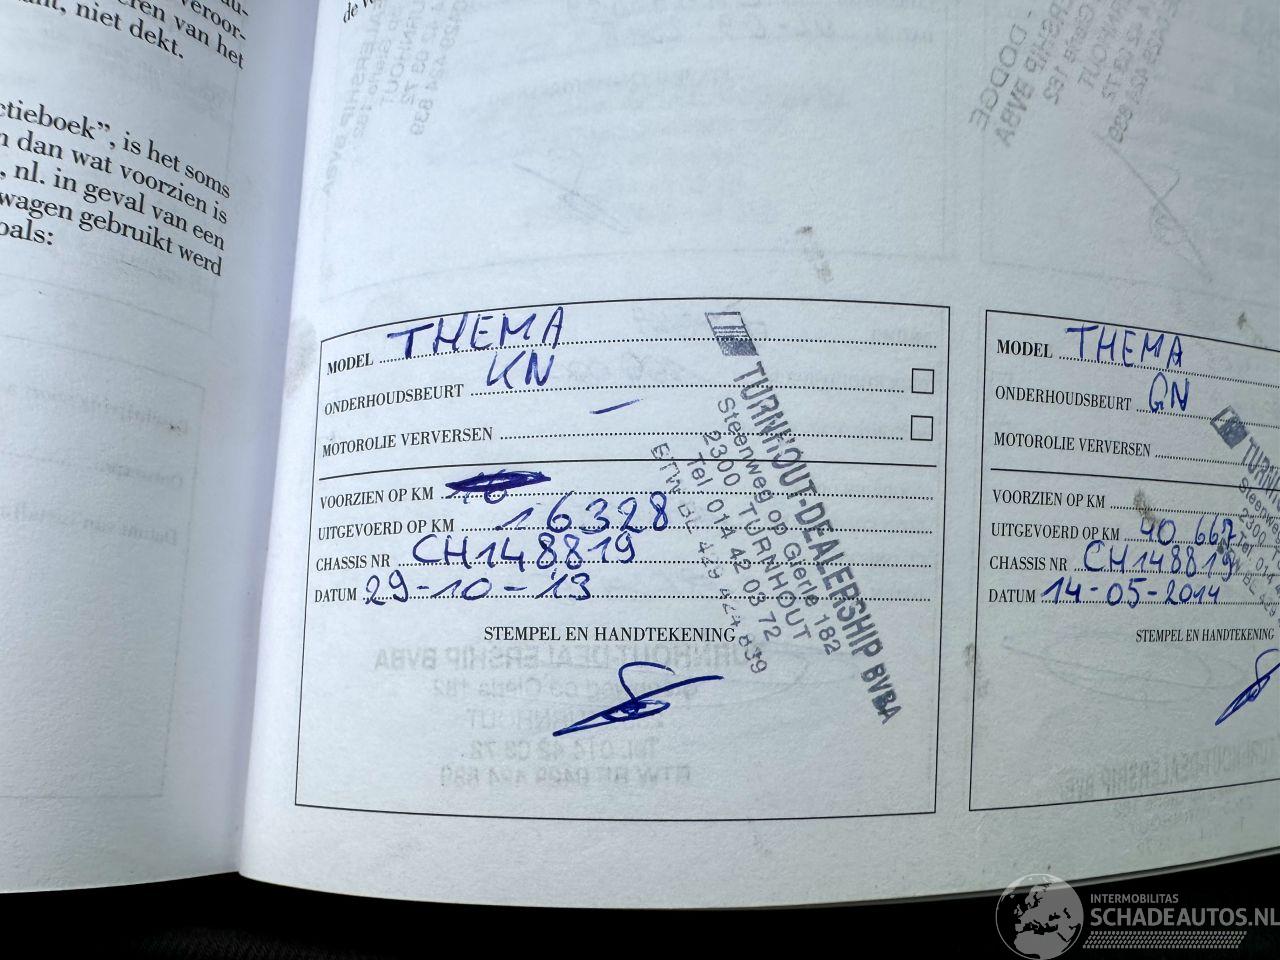 veroor-
eren van het
nt, niet dekt.
ctieboek”, is het soms
n dan wat voorzien is
, nl. in geval van een
wagen gebruikt werd
oals:
MODEL THEMA
ONDERHOUDSBEURT KN
MOTOROLIE VERVERSEN –
VOORZIEN OP KM
UITGEVOERD OP KM 16328
CHASSIS NR CH148819
DATUM 29-10-13
STEMPEL EN HANDTEKENING
TURNHOUT-DEALERSHIP BVBA
Steenweg op Gierle 182
2300 TURNHOUT
Tel 014 42 03 72
MODEL THEMA
ONDERHOUDSBEURT GN
MOTOROLIE VERVERSEN
VOORZIEN OP KM
UITGEVOERD OP KM 40 667
CHASSIS NR CH148819
DATUM 14-05-2014
STEMPEL EN HANDTEKENING
INTERMOBILITAS
SCHADEAUTOS.NL